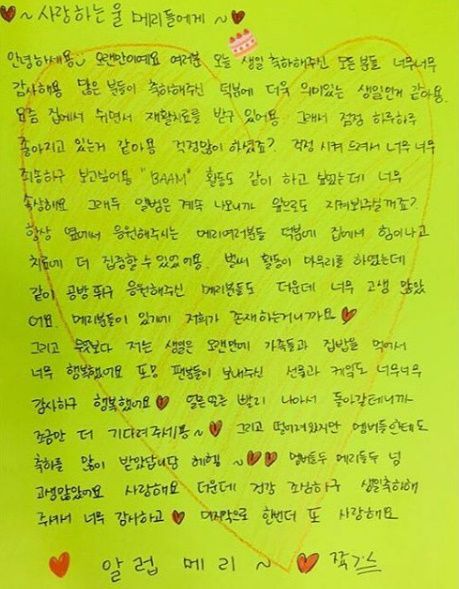 ♥ ~ 사랑하는 울 메리들에게 ~ ♥
안녕하세용 오랜만이예요 여러분 오늘 생일 축하해주신 모든분들 너무너무
감사해용 많은 분들이 축하해주신 덕분에 더욱 의미있는 생일인거 같아용.
요즘 집에서 쉬면서 재활치료를 받구 있어용 그래서 점점 하루하루
좋아지고 있는거 같아용 걱정많이 하셨죠? 걱정 시켜 드려서 너무 너무
죄송하구 보고싶어용 "BAAM" 활동도 같이 하고 싶었는데 너무
속상해요 그래두 앨범은 계속 나오니까 앞으로도 지켜봐주실꺼죠?
항상 옆에서 응원해주시는 메리여러분들 덕분에 집에서 힘이나고
치료에 더 집중할 수 있었어용. 벌써 활동이 마무리를 하였는데
같이 공방 뛰구 응원해주신 메리분들도 더운데 너무 고생 많았
어요 메리분들이 있기에 저희가 존재하는거니까요 ♥
그리고 무엇보다 저는 생일은 오랜만에 가족들과 집밥을 먹어서
너무 행복했어요 또 팬분들이 보내주신 선물과 케익도 너무너무
감사하구 행복했어요 ♥ 얼른 빨리 나아서 돌아갈테니까
조금만 더 기다려주세용 ~ ♥ 그리고 떨어져있지만 멤버들한테도
축하를 많이 받았답니당 헤헿 ~ ♥♥ 멤버들두 메리들두 넘
고생많았어요 사랑해요 더운데 건강 조심하구 생일축하해
주셔서 너무 감사하고 ♥ 마지막으로 한번더 또 사랑해요
♥ 알럽 메리 ~ ♥